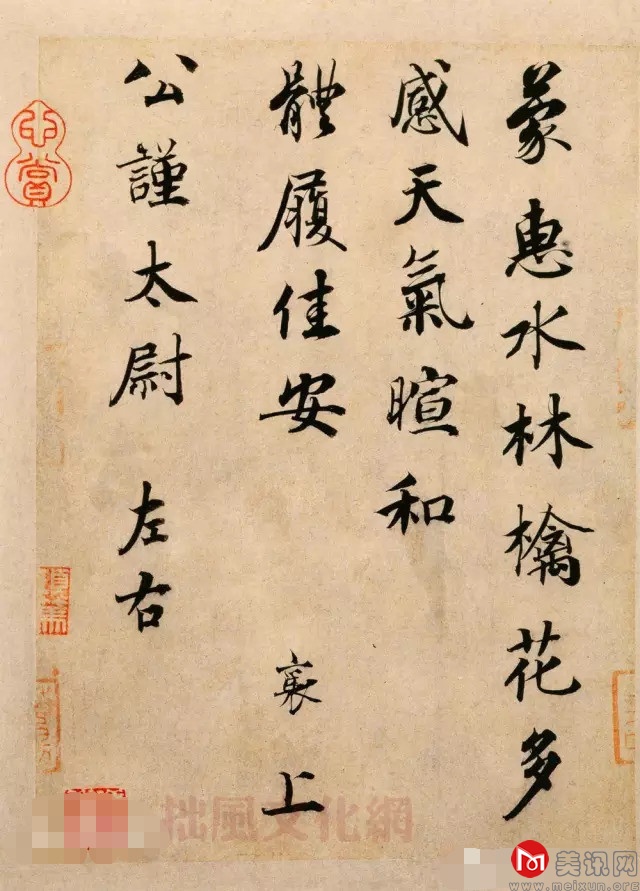 蒙惠水林檎花多
感天氣暄和
體履佳安
襄上
公謹太尉 左右
拙風文化網
美讯网
www.meixun.org